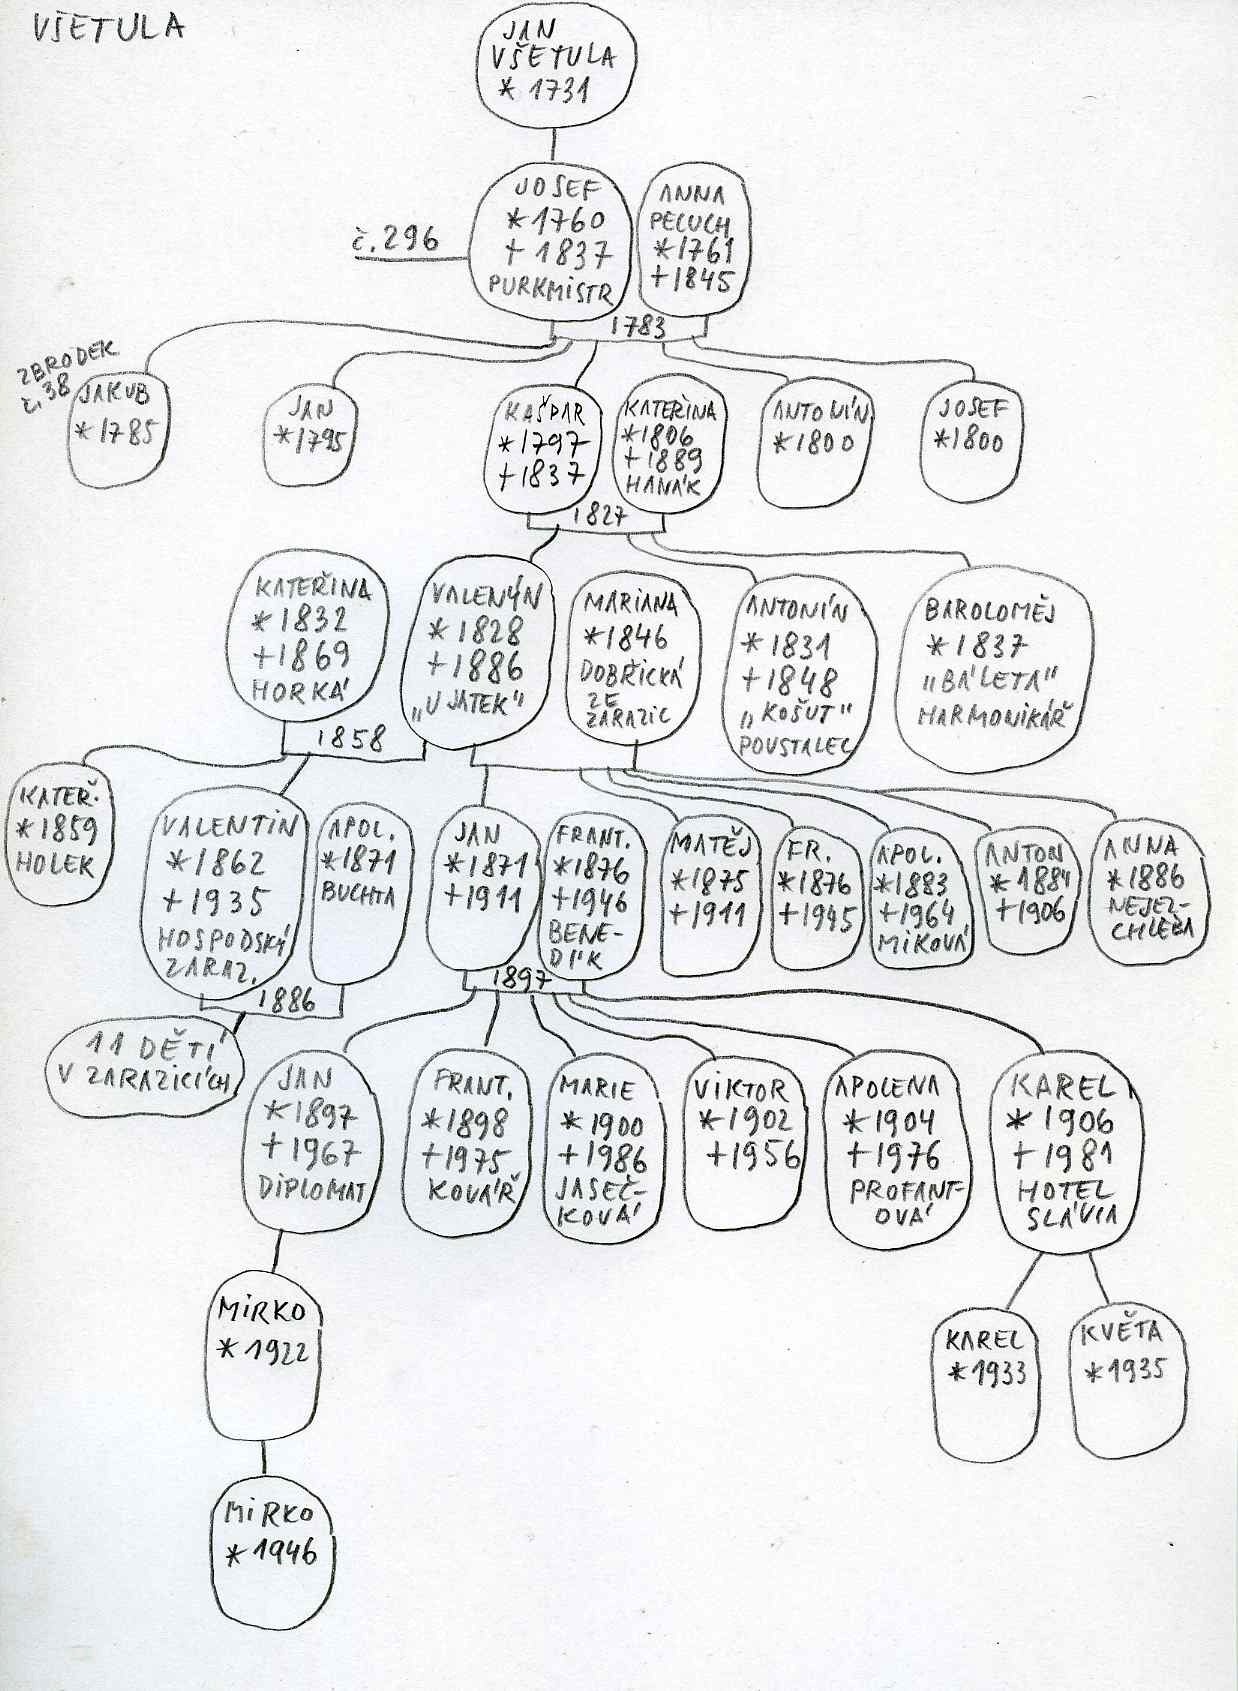 VŠETULA
JAN
VŠETULA
* 1731
JOSEF
*1760
+ 1837
PURKMISTR
ANNA
PELUCH
*1761
+1845
č. 296
1783
ZBRODEK
č. 38
JAKUB
*1785
JAN
*1795
KAŠPAR
*1797
+1837
KATEŘINA
*1806
+1889
HANÁK
ANTONÍN
*1800
JOSEF
*1800
1827
KATEŘINA
*1832
+1869
HORKÁ
VALENÝN
*1828
+1886
„U JATEK"
MARIANA
*1846
DOBŘICKÁ
ZE
ZARAZIC
ANTONÍN
*1831
+1848
„KOŠUT"
POVSTALEC
BAROLOMĚJ
*1837
„BÁLETA"
HARMONIKÁŘ
1858
KATEŘ.
*1859
HOLEK
VALENTIN
*1862
+1935
HOSPODSKÝ
ZARAZ.
APOL.
*1871
BUCHTA
JAN
*1871
+1911
FRANT.
*1876
+1946
BENE-
DÍK
MATĚJ
*1875
+1911
FR.
*1876
+1945
APOL.
*1883
+1964
MIKOVÁ
ANTON
*1884
+1906
ANNA
*1886
NEJEZ-
CHLEBA
1886
1897
11 DĚTÍ
V ZARAZICÍCH
JAN
*1897
+1967
DIPLOMAT
FRANT.
*1898
+1975
KOVÁŘ
MARIE
*1900
+1986
JASEČ-
KOVÁ
VIKTOR
*1902
+1956
APOLENA
*1904
+1976
PROFANT-
OVÁ
KAREL
* 1906
+ 1981
HOTEL
SLÁVIA
MIRKO
*1922
KAREL
*1933
KVĚTA
*1935
MIRKO
*1946